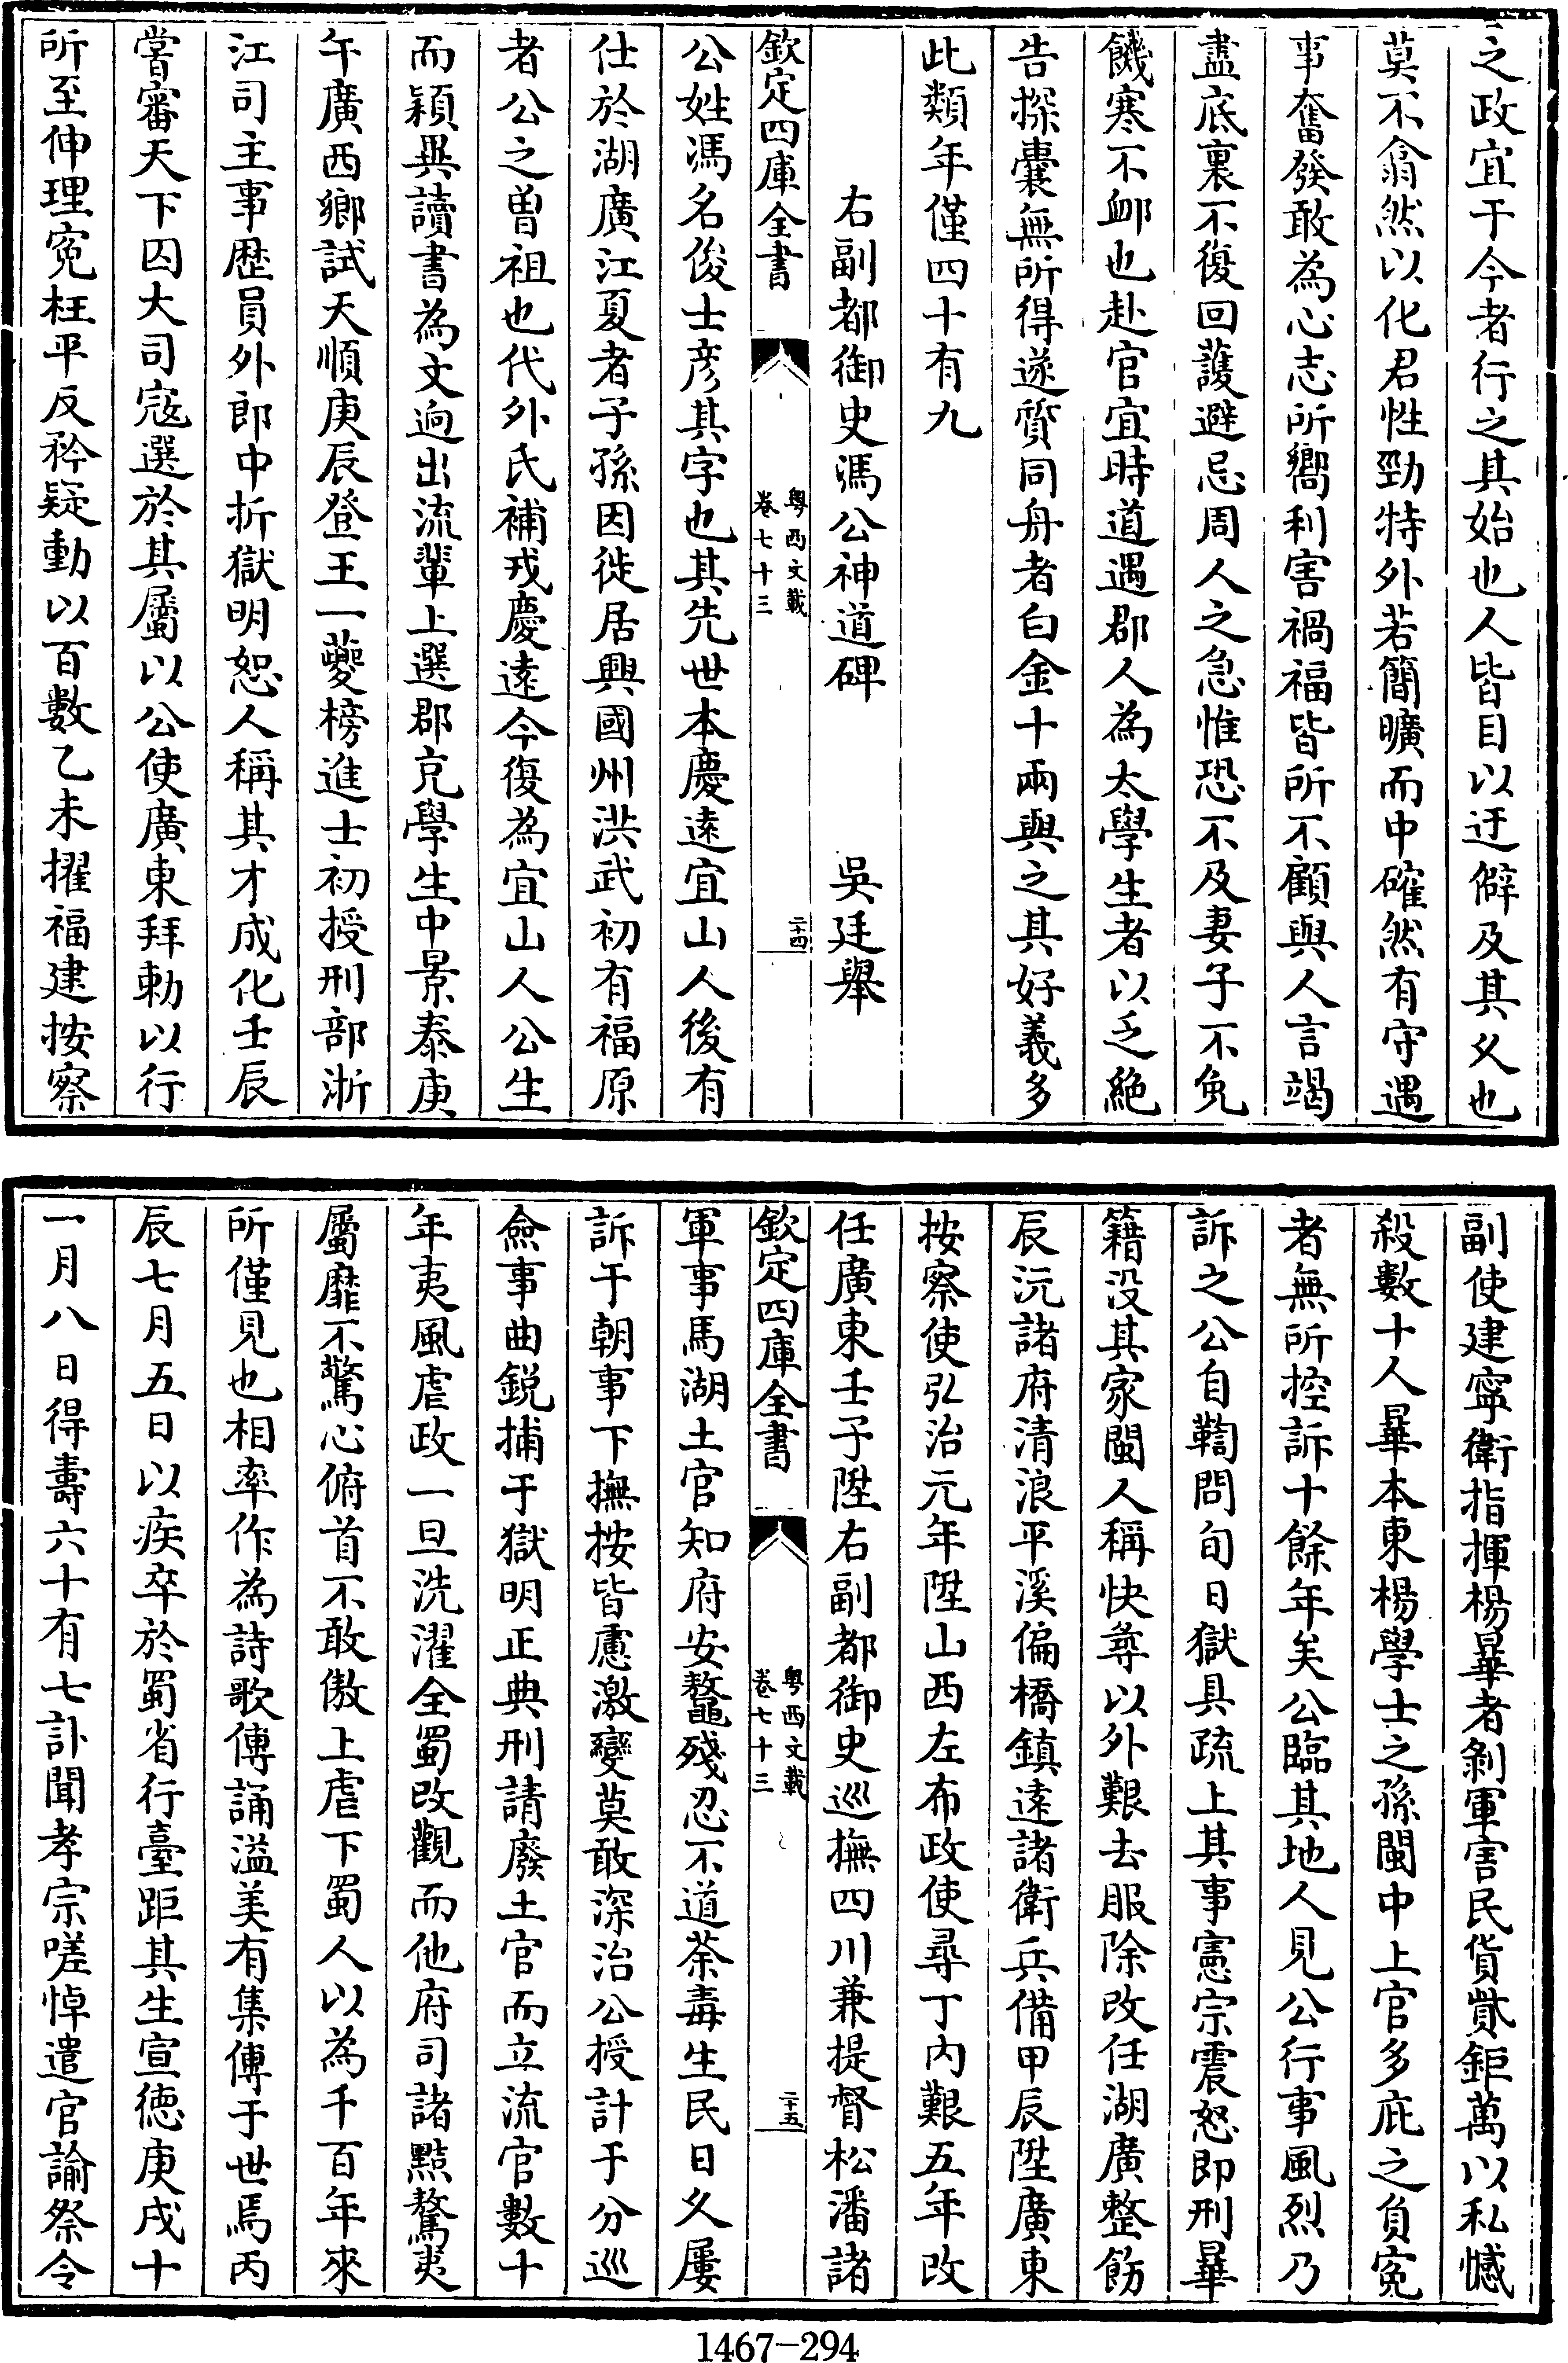 之政宜于今者行之其始也人皆目以迂僻及其久也
莫不翕然以化君性勁特外若簡曠而中確然有守遇
事奮發敢為心志所嚮利害禍福皆所不顧與人言竭
盡底裏不復回護避忌周人之急惟恐不及妻子不免
饑寒不卹也赴官宜時道遇郡人為太學生者以乏絶
告探囊無所得遂質同舟者白金十兩與之其好義多
此類年僅四十有九
右副都御史馮公神道碑 吳廷舉
欽定四庫全書 粤西文載 卷七十三 二十四
公姓馮名俊士彦其字也其先世本慶遠宜山人後有
仕於湖廣江夏者子孫因徙居興國州洪武初有福原
者公之曽祖也代外氏補戎慶遠今復為宜山人公生
而穎異讀書為文逈出流輩上選郡克學生中景泰庚
午廣西鄉試天順庚辰登王一夔榜進士初授刑部浙
江司主事歴員外郎中折獄明恕人稱其才成化壬辰
嘗審天下囚大司寇選於其屬以公使廣東拜勅以行
所至伸理寃枉平反矜疑動以百數乙未擢福建按察
副使建寧衛指揮楊曅者剝軍害民貨貲鉅萬以私憾
殺數十人曅本東楊學士之孫閩中上官多庇之負寃
者無所控訴十餘年矣公臨其地人見公行事風烈乃
訴之公自鞫問旬日獄具疏上其事憲宗震怒即刑曅
籍没其家閩人稱快尋以外艱去服除改任湖廣整飭
辰沅諸府清浪平溪偏橋鎮遠諸衛兵備甲辰陞廣東
按察使弘治元年陞山西左布政使尋丁内艱五年改
任廣東壬子陞右副都御史巡撫四川兼提督松潘諸
欽定四庫全書 粤西文載 卷七十三 二十五
軍事馬湖土官知府安鼇殘忍不道荼毒生民日久屢
訴于朝事下撫按皆慮激變莫敢深治公授計于分巡
僉事曲鋭捕于獄明正典刑請廢土官而立流官數十
年夷風虐政一旦洗濯全蜀改觀而他府司諸黠驁夷
屬靡不驚心俯首不敢傲上虐下蜀人以為千百年來
所僅見也相率作為詩歌傳誦溢美有集傳于世焉丙
辰七月五日以疾卒於蜀省行臺距其生宣德庚戌十
一月八日得壽六十有七訃聞孝宗嗟悼遣官諭祭令
1467-294